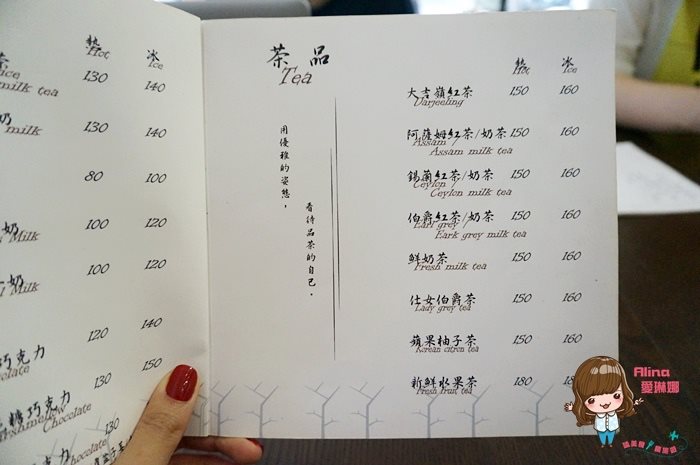 熱 冰
Hot Ice
milk tea 130 140
奶
milk 130 140
80 100
奶
Milk 100 120
奶
Milk 100 120
巧克力 120 140
Chocolate
糖巧克力 130 150
Chocolate
Chocolate 130
茶品
Tea
用優雅的姿態，
看待品茶的自己。
熱 冰
Hot Ice
大吉嶺紅茶 150 160
Darjeeling
阿薩姆紅茶/奶茶 150 160
Assam /
Assam milk tea
錫蘭紅茶/奶茶 150 160
Ceylon /
Ceylon milk tea
伯爵紅茶/奶茶 150 160
Earl grey /
Eark grey milk tea
鮮奶茶 150 160
Fresh milk tea
仕女伯爵茶 150 160
Lady grey tea
蘋果柚子茶 150 160
Korean citron tea
新鮮水果茶 180
Fresh fruit tea
Alina
愛琳娜